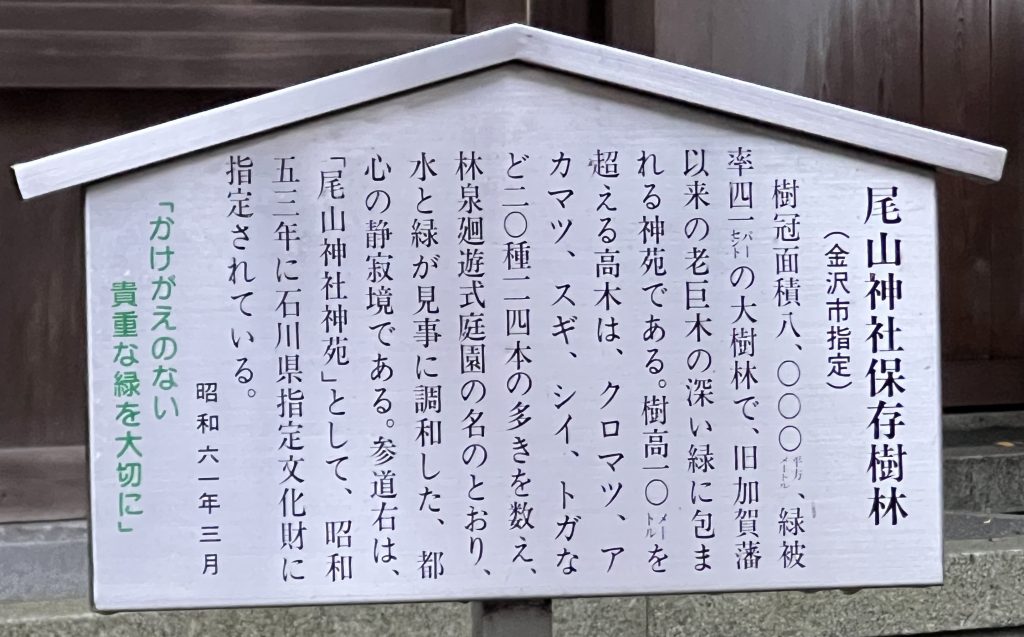 尾山神社保存樹林
（金沢市指定）
樹冠面積八、〇〇〇平方メートル、緑被
率四一パーセントの大樹林で、旧加賀藩
以来の老巨木の深い緑に包ま
れる神苑である。樹高一〇メートルを
超える高木は、クロマツ、ア
カマツ、スギ、シイ、トガな
ど二〇種二四本の多きを数え、
林泉廻遊式庭園の名のとおり、
水と緑が見事に調和した、都
心の静寂境である。参道右は、
「尾山神社神苑」として、昭和
五三年に石川県指定文化財に
指定されている。
昭和六一年三月
「かけがえのない
貴重な緑を大切に」